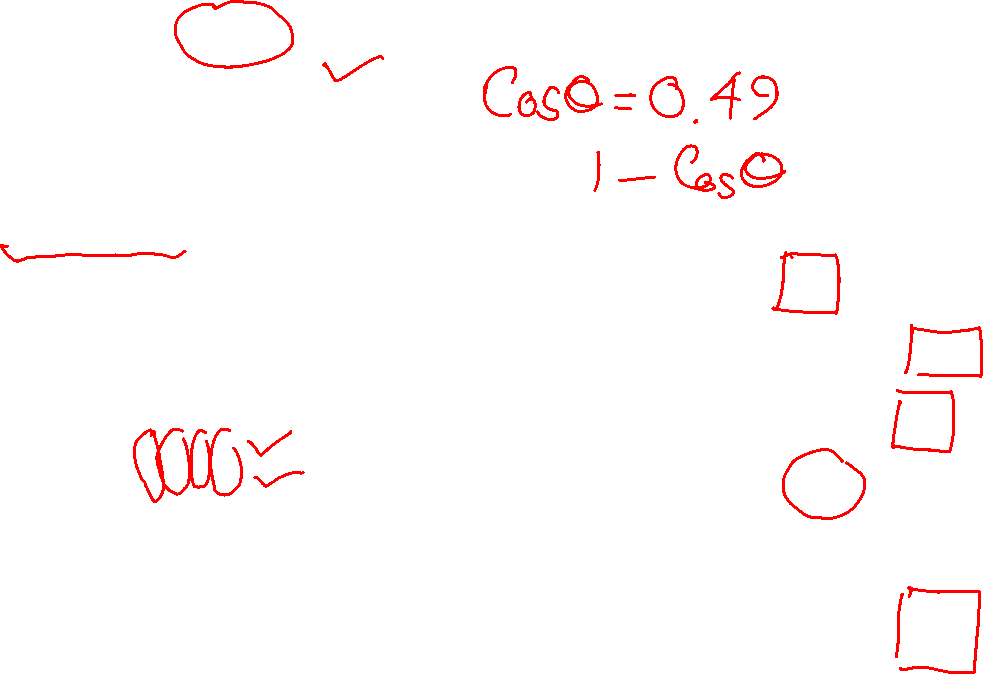 Cosθ = 0.49
1 - Cosθ